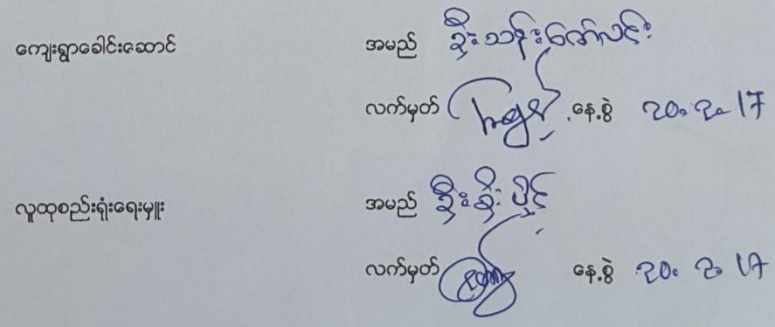 ကျေးရွာခေါင်းဆောင် အမည် ဦးသန်းဇော်လင်း
လက်မှတ် နေ့စွဲ ၃၀.၃.17
လူထုစည်းရုံးရေးမှူး အမည် ဦးစိုးပိုင်
လက်မှတ် နေ့စွဲ ၃၀.၃.17